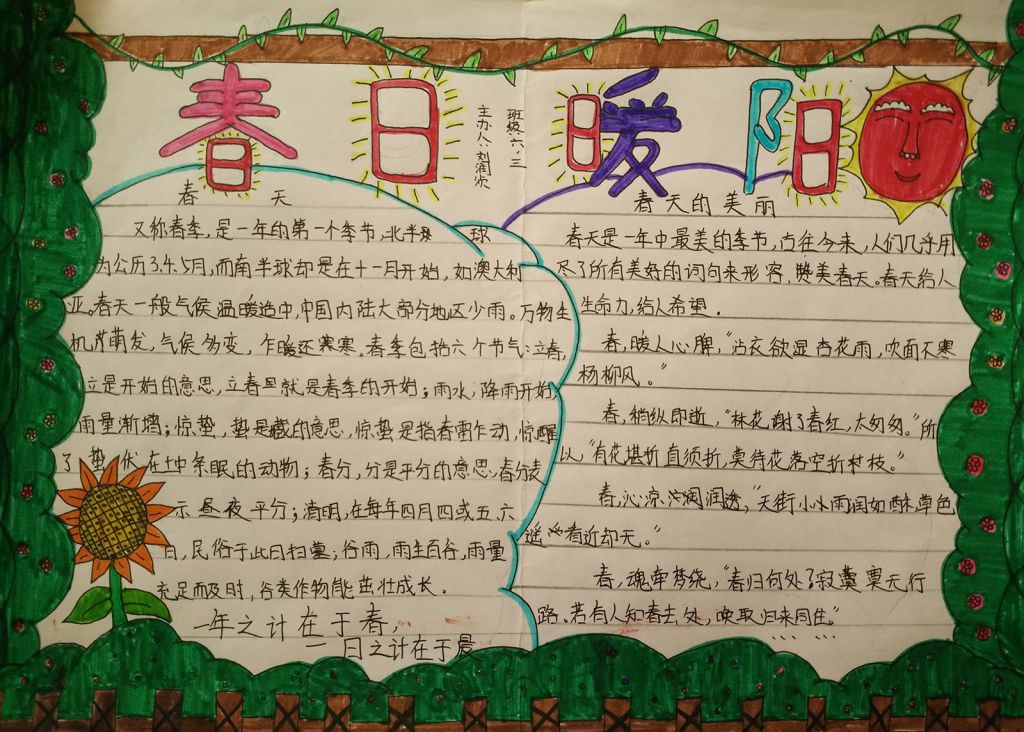 春日暖阳
班级:六、三
主办人:刘润
春天
又称春季,是一年的第一个季节,北半球
为公历3.4.5月,而南半球却是在十一月开始,如澳大利
亚。春天一般气候温暖适中,中国内陆大部分地区少雨。万物生
机芽萌发,气候多变,乍暖还寒寒。春季包括六个节气:立春,
立是开始的意思,立春旦就是春季的开始;雨水;降雨开始,
雨量渐增;惊蛰,蛰是藏的意思,惊蛰是指春雷乍动,惊醒
了蛰伏在土中冬眠的动物;春分,分是平分的意思,春分表
示昼夜平分;清明,在每年四月四或五六
日,民俗于此日扫墓;谷雨,雨生百谷,雨量
充足而及时,谷类作物能茁壮成长.
一年之计在于春,
一日之计在于晨
春天的美丽
春天是一年中最美的季节,古往今来,人们几乎用
尽了所有美好的词句来形容、赞美春天。春天给人
生命力,给人希望.
春,暖人心脾,“沾衣欲湿杏花雨,吹面不寒
杨柳风。”
春,稍纵即逝,“林花谢了春红,太匆匆。”所
以“有花堪折直须折,莫待花落空折枝。”
春,沁凉润透,“天街小水雨润如酥,草色
遥看近却无。”
春,魂牵梦绕,“春归何处了寂寞无行
路.若有人知春去处,唤取归来同住。”